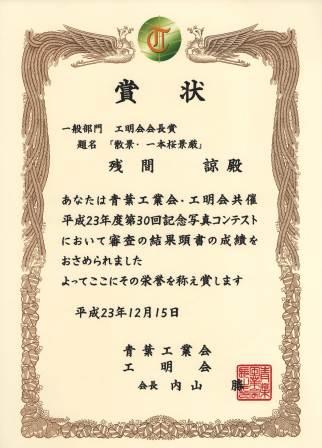 賞状
一般部門 工明会会長賞
題名 「散景・一本桜景厳」
残間 諒殿
あなたは青葉工業会・工明会共催
平成23年度第30回記念写真コンテスト
において審査の結果頭書の成績を
おさめられました
よってここにその栄誉を称え賞します
平成23年12月15日
青葉工業会
工明会
会長 内山 勝